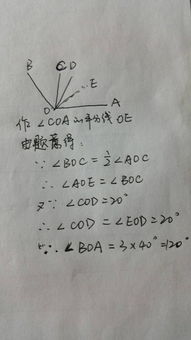 B C D
E
O A
作∠COA的平分线OE
由题意得:
∵∠BOC=½∠AOC
∴∠AOE=∠BOC
又∵∠COD=20°
∴∠COD=∠EOD=20°
∴∠BOA=3×40°=120°